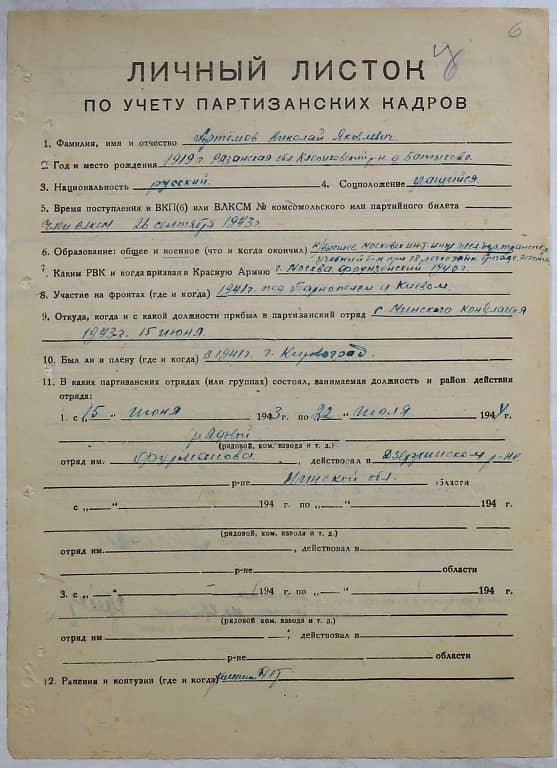 6
ЛИЧНЫЙ ЛИСТОК
ПО УЧЕТУ ПАРТИЗАНСКИХ КАДРОВ
1. Фамилия, имя и отчество Артёмов Николай Яковлевич
2. Год и место рождения 1919 г. Рязанская обл Клепиковский р-н д.
3. Национальность русский. 4. Соцположение учащийся.
5. Время поступления в ВКП(б) или ВЛКСМ № комсомольского или партийного билета
ВЛКСМ 26 сентября 1943 г.
6. Образование: общее и военное (что и когда окончил) Московск
7. Каким РВК и когда призван в Красную Армию г. Москва. Фрунзенский 1940 г.
8. Участие на фронтах (где и когда) 1941 г. под Тарнополем и Киевом.
9. Откуда, когда и с какой должности прибыл в партизанский отряд с Минского концлагеря
1943 г. 15 июня.
10. Был ли в плену (где и когда) в 1941 г. г. Кировоград.
11. В каких партизанских отрядах (или группах) состоял, занимаемая должность и район действия
отряда:
1. с „15 " июня 1943 г. по „22 " июля 1944 г.
рядовой
(рядовой, ком. взвода и т. д.)
отряд им. Фурманова , действовал в Дзержинском р-не
р-не Минской обл. области
с „— " 194 г. по „— " 194 г.
(рядовой, ком. взвода и т. д.)
отряд им. , действовал в
р-не области
3. с „— " 194 г. по „— " 194 г.
(рядовой, ком. взвода и т. д.)
отряд им , действовал в
р-не области
12. Ранения и контузии (где и когда)